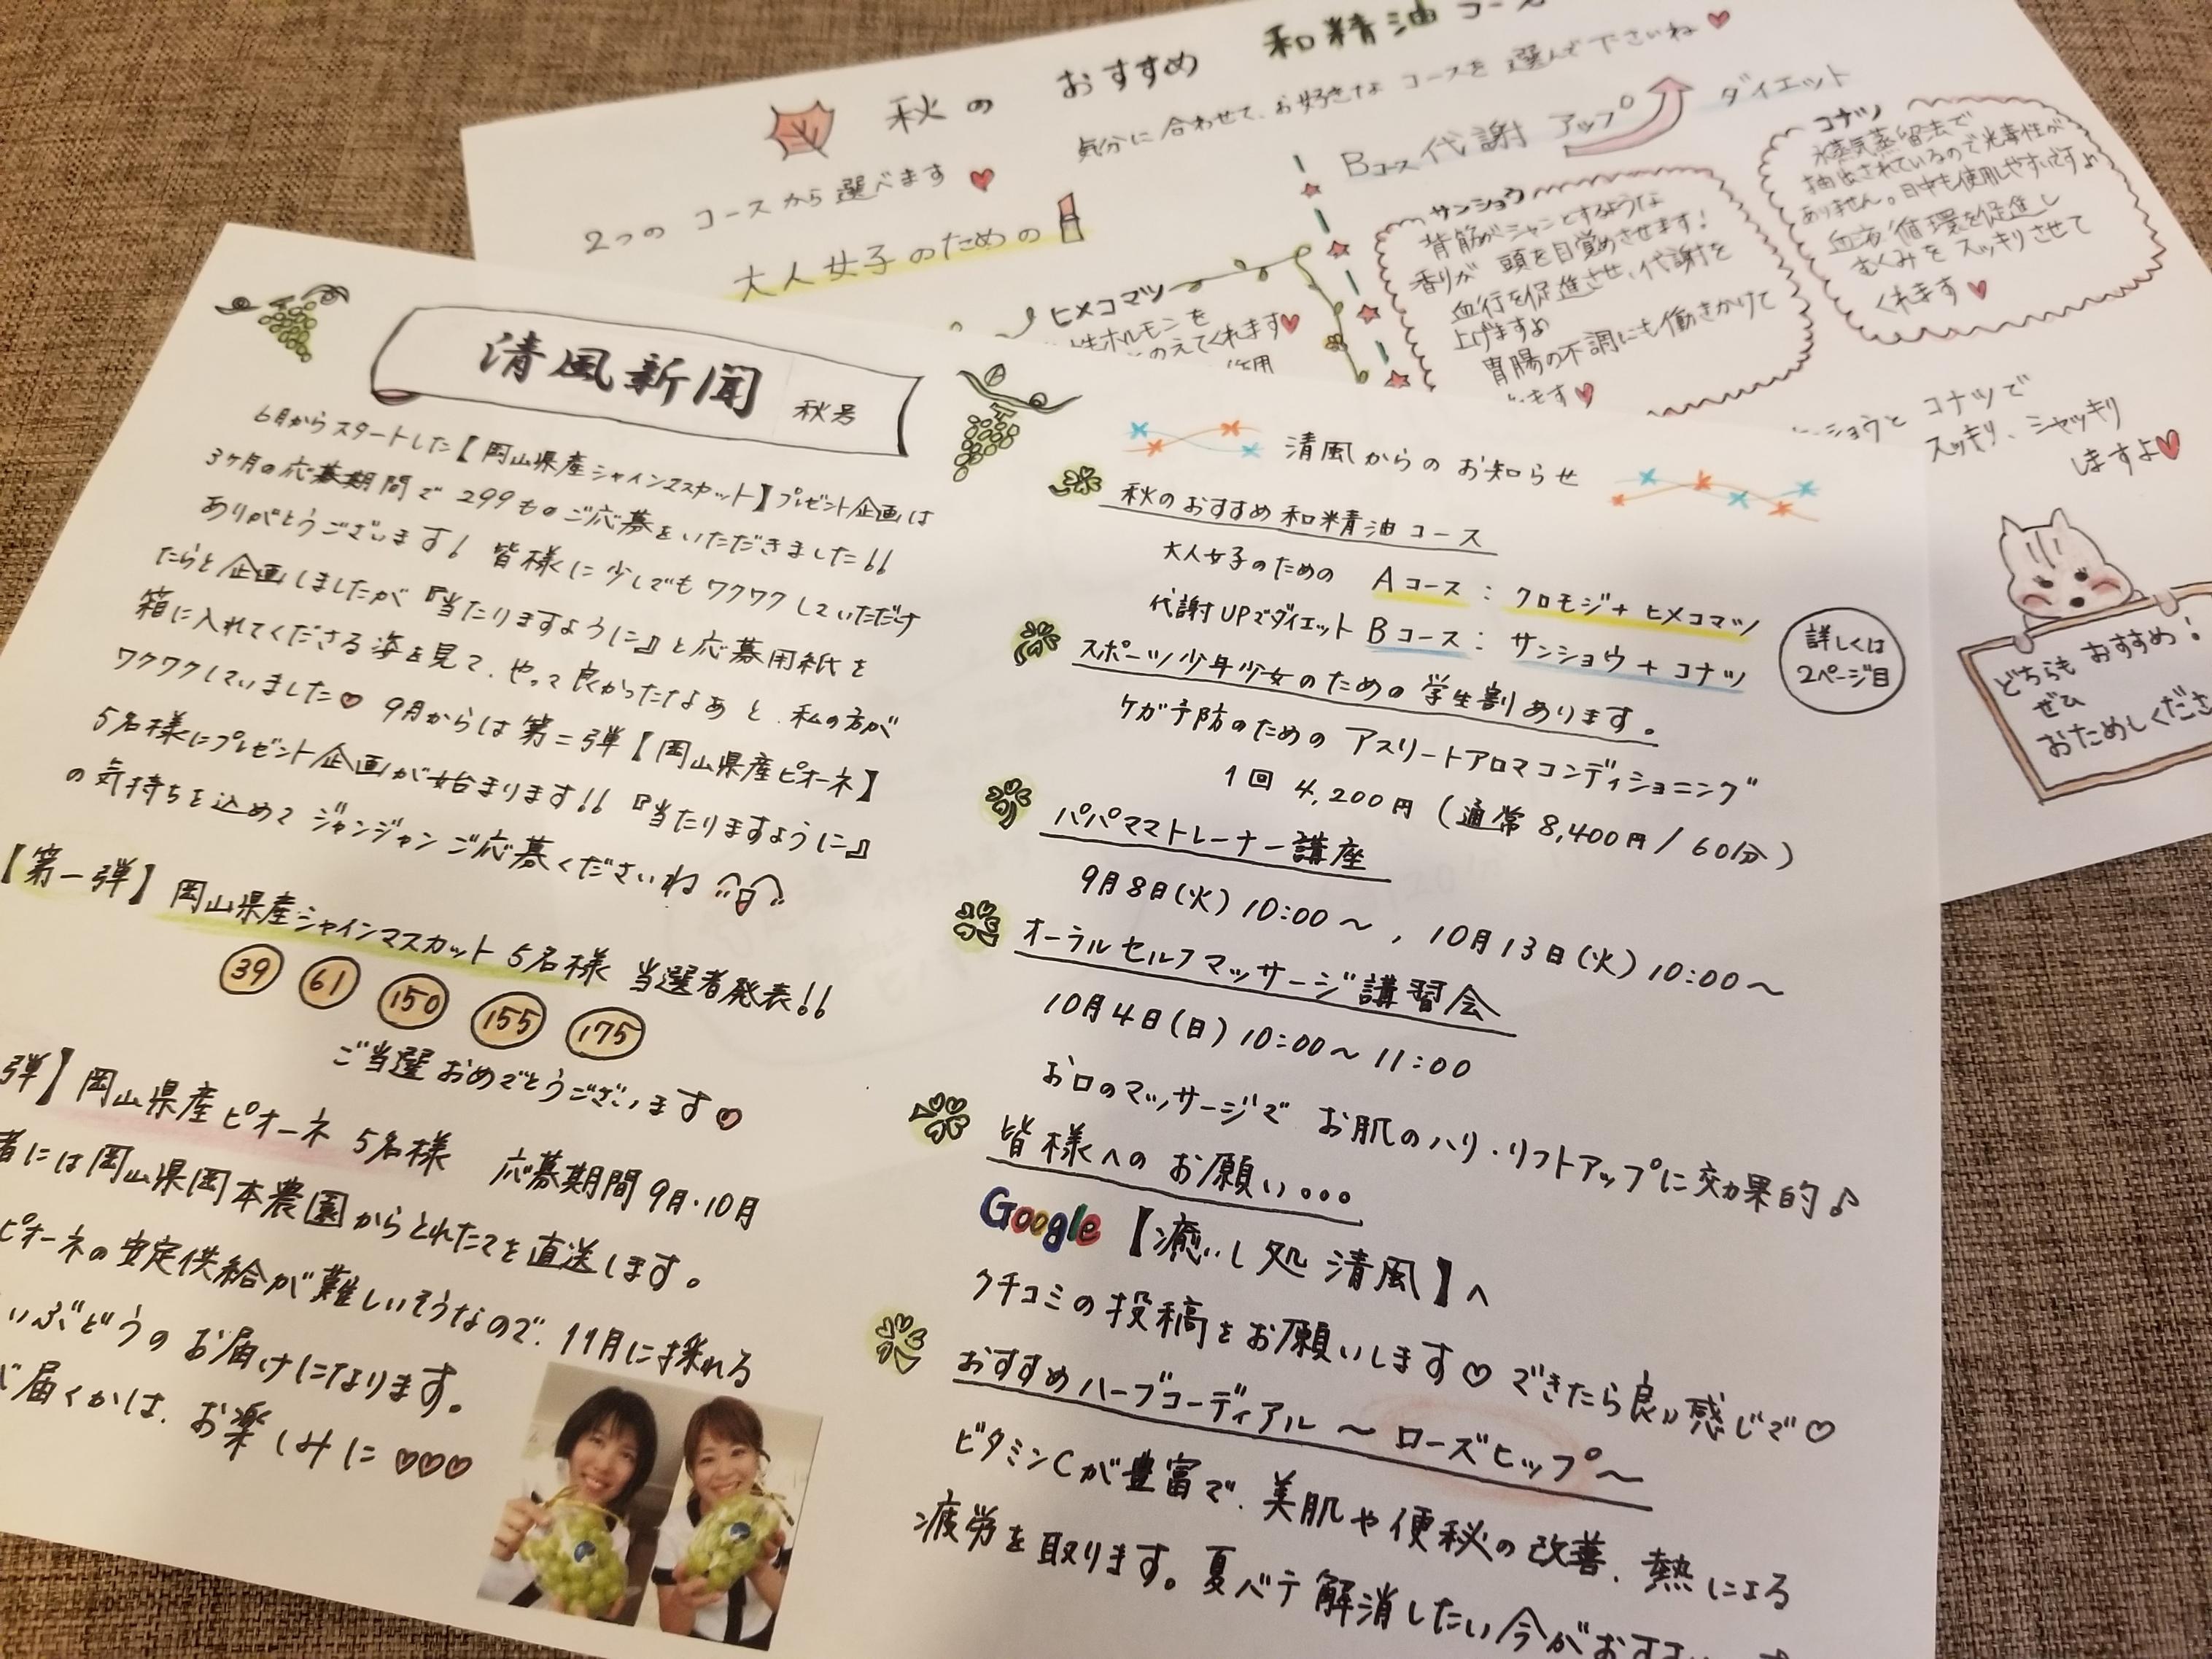 秋の おすすめ 和精油コース
気分に合わせて、お好きな コースを 選んで下さいね
2つの コースから選べます
大人女子のための
ヒメコマツ
性ホルモンを
のえてくれます
作用
Bコース 代謝 アップ ダイエット
サンショウ
背筋がシャンとするような
香りが 頭を目覚めさせます!
血行を促進させ、代謝を
上げますよ
胃腸の不調にも働きかけて
ます
コナツ
水蒸気蒸留法で
抽出されているので光毒性が
ありません。日中も使用しやすいですよ
血液循環を促進し
むくみを スッキリさせて
くれます
ショウと コナツで
スッキリ、シャッキリ
しますよ
どちらも おすすめ!
ぜひ
おためしくださ
清風新聞 秋号
6月からスタートした【岡山県産シャインマスカット】プレゼント企画は
3ヶ月の応募期間で 299ものご応募をいただきました!!
ありがとうございます! 皆様に少しでもワクワクしていただけ
たらと企画しましたが『当たりますように』と応募用紙を
箱に入れてくださる姿を見て、やって良かったなぁ と、私の方が
ワクワクしていました♡ 9月からは第二弾【岡山県産ピオーネ】
5名様にプレゼント企画が始まります!! 『当たりますように』
の気持ちを込めて ジャンジャンご応募くださいね
【第一弾】岡山県産シャインマスカット 5名様 当選者発表!!
39 61 150 155 175
ご当選おめでとうございます♡
弾】岡山県産ピオーネ 5名様 応募期間 9月・10月
者には岡山県岡本農園からとれたてを直送します。
ピオーネの安定供給が難しいそうなので、11月に採れる
いぶどうのお届けになります。
届くかは、お楽しみに♡♡♡
清風からのお知らせ
秋のおすすめ和精油コース
大人女子のための Aコース : クロモジ+ヒメコマツ
代謝UPでダイエット Bコース : サンショウ+コナツ
詳しくは
2ページ目
スポーツ少年少女のための学生割あります。
ケガ予防のための アスリートアロマコンディショニング
1回 4,200円 (通常 8,400円/60分)
パパママトレーナー講座
9月8日(火) 10:00〜 , 10月13日(火) 10:00〜
オーラルセルフマッサージ講習会
10月4日(日) 10:00〜11:00
お口のマッサージで お肌のハリ・リフトアップに効果的♪
皆様へのお願い...
Google【癒し処 清風】へ
クチコミの投稿をお願いします♡ できたら良い感じで♡
おすすめハーブコーディアル 〜ローズヒップ〜
ビタミンCが豊富で、美肌や便秘の改善、熱による
疲労を取ります。夏バテ解消したい今がおすす